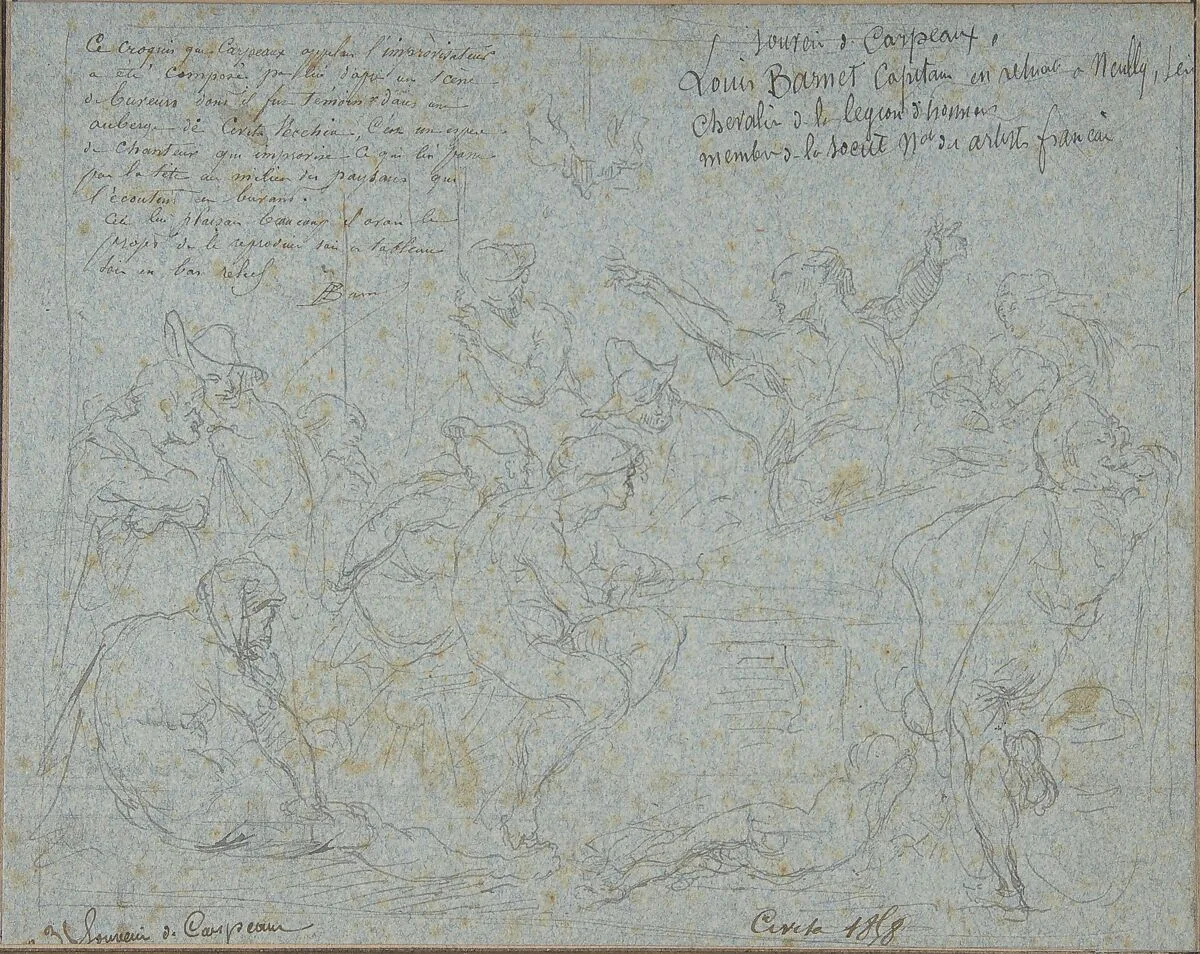 Ce croquis que Carpeaux appela l'improvisateur
a été composé par lui d'après une scène
de buveurs dont il fut témoin dans une
auberge de Civita Vecchia, C'est un espèce
de chanteur qui improvise ce qui lui passe
par la tête au milieu des paysans qui
l'écoutent en buvant.
Cela lui plaisait beaucoup il avait le
projet de le reproduire soit en tableau
soit en bas relief
souvenir de Carpeaux.
Louis Barnet Capitain en retraite a Neuilly,
Chevalier de la legion d'honneur
membre de la societ Nle des artists francai
Souvenir de Carpeaux
Civita 1858